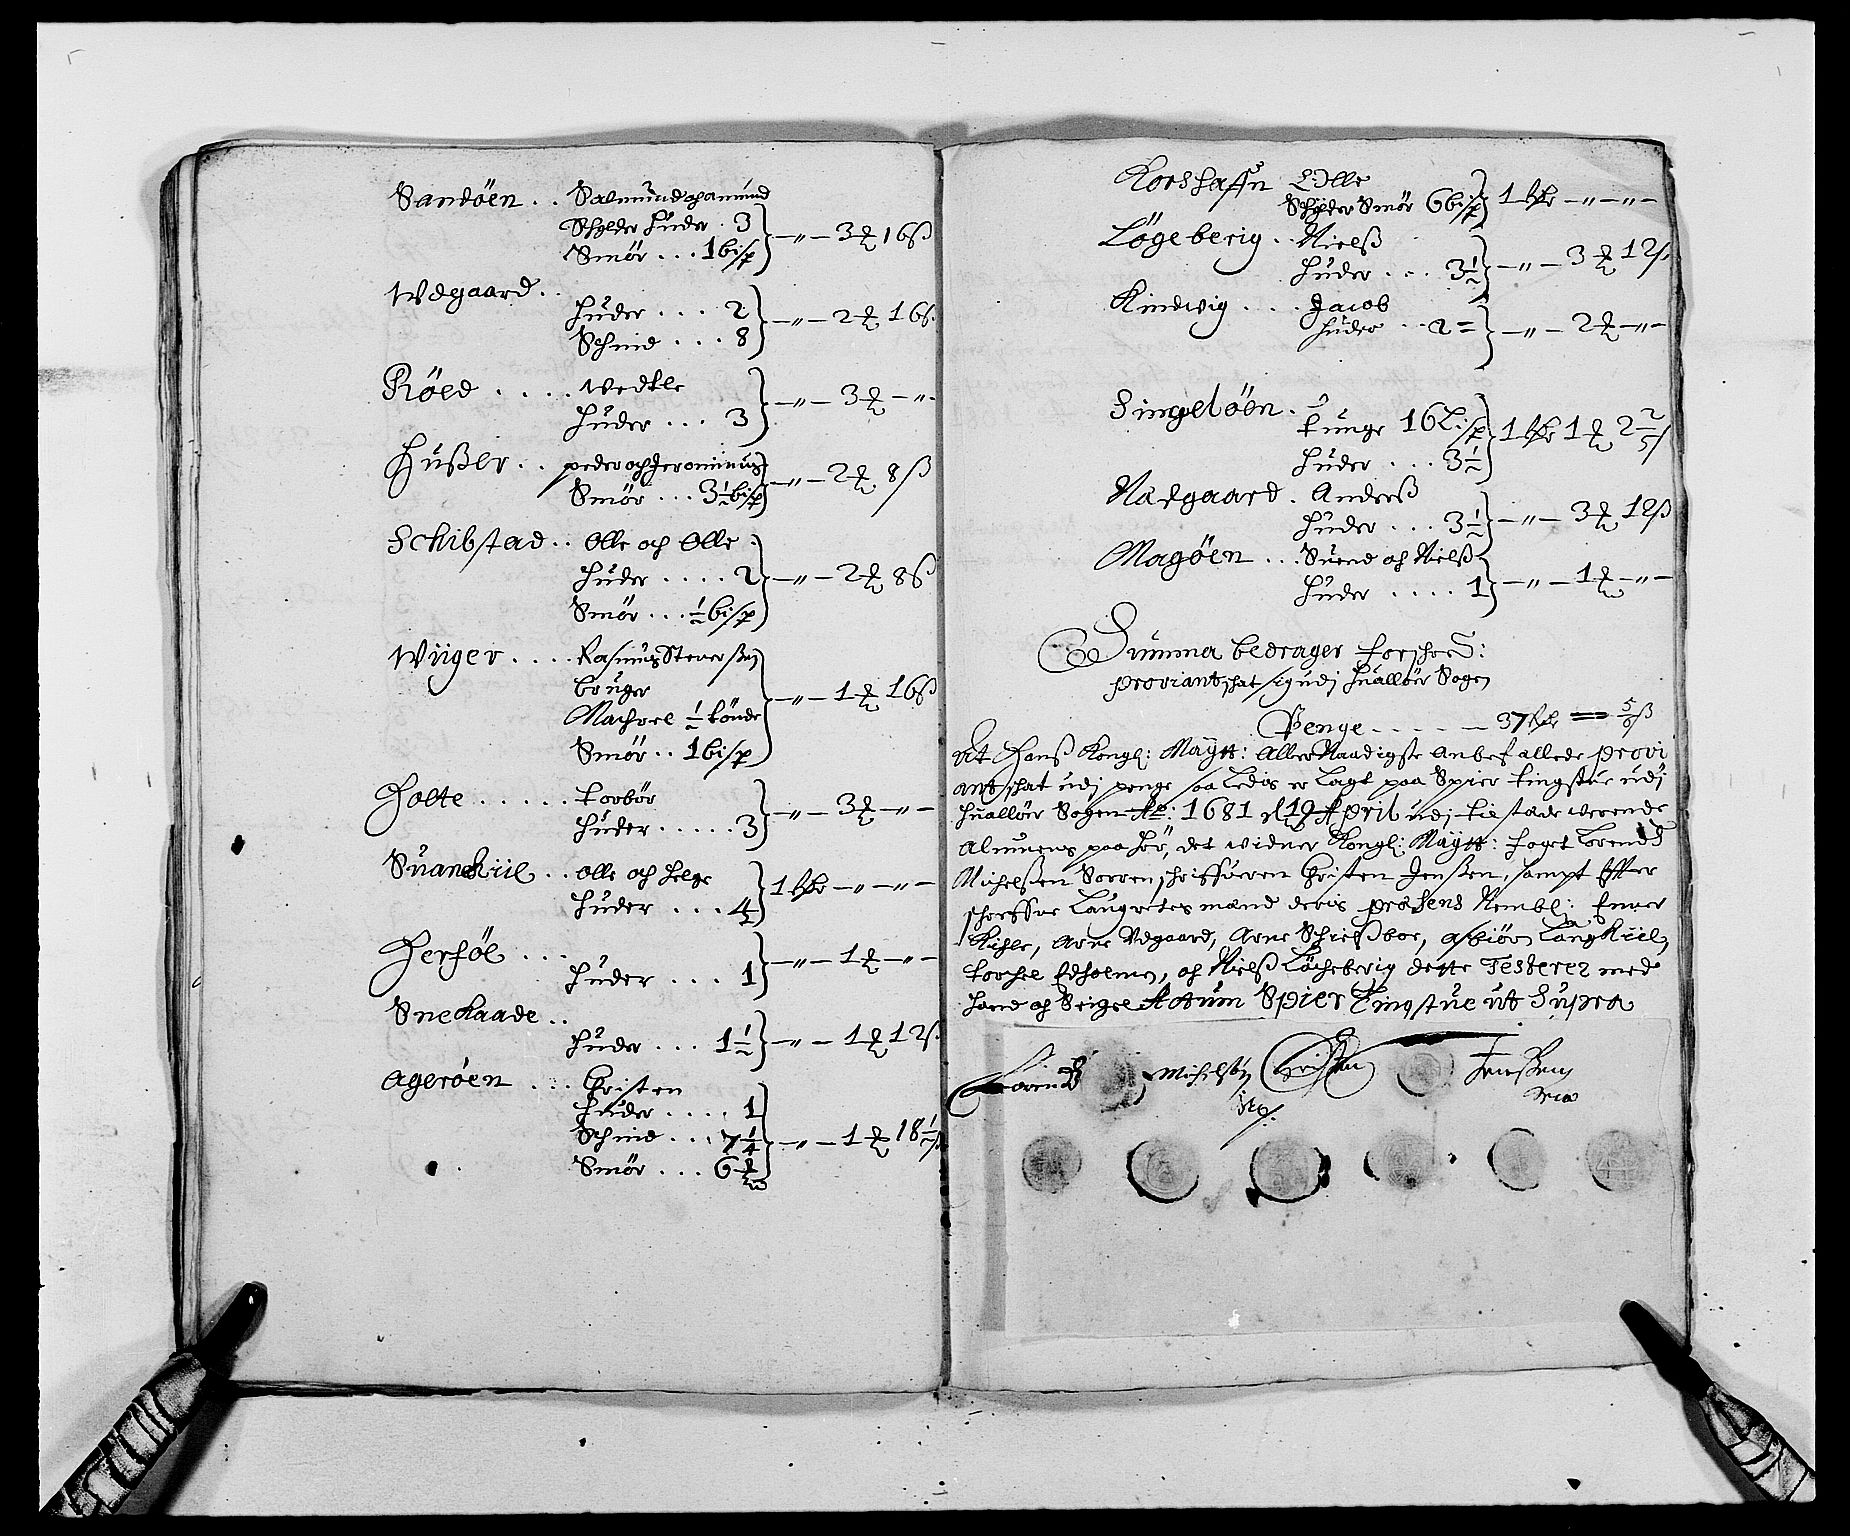 Sandöen . . Salmund och Amund
Schylder huder . 3
Smör . . . 1 bisp } – „ – 3 ℔ 16 ß
Wdgaard . .
huder . . . . 2
Schind . . . 8 } – „ – 2 ℔ 16 ß
Röed . . . . . wedtle
huder . . . 3 } – „ – 3 ℔ – „ –
Hußer . . peder och Jeronimus
Smör . . . 3 ½ bisp } – „ – 2 ℔ 8 ß
Schibstad . . Olle och Olle
huder . . . . 2
Smör . . . ½ bisp } – „ – 2 ℔ 8 ß
Wiiger . . . . Rasmus Steuerßen
bruger
Machrel ½ tönde
Smör . . 1 bisp } – „ – 1 ℔ 16 ß
Holte . . . . . torbör
huder . . . . . 3 } – „ – 3 ℔ – „ –
Suanekiil . . olle och helge
huder . . . 4 } 1 Rdr – „ – „ –
Herföl . . .
huder . . . 1 } – „ – 1 ℔ – „ –
Snekaade . .
huder . . . 1 ½ } – „ – 1 ℔ 12 ß
Ageröen . . . Christen
huder . . . . 1
Schind . . . 7 ¼
Smör . . . 6 ℔ } – „ – 1 ℔ 18 ½ ß
Korshaffn Olle
Schylder Smör 6 bisp } 1 Rdr – „ – „ –
Lögeberig . . Nielß
huder . . . 3 ½ } – „ – 3 ℔ 12 ß
Kindwig . . . . Jacob
huder . . 2 = } – „ – 2 ℔ – „ –
Singelöen .
tunge 16 Lisp
huder . . . 3 ½ } 1 Rdr 1 ℔ 2 2/5 ß
Nadgaard . Anderß
huder . . . 3 ½ } – „ – 3 ℔ 12 ß
Magöen . . . Suend och Nielß
huder . . . . 1 } – „ – 1 ℔ – „ –
Summa bedrager forschred:
proviantschat sig udj Huallöer Sogen
Penge . . . . . — 37 Rdr == 5/6 ß
At Hanß Kongl: Maÿtt: AllerNaadigste Anbefallede provi
antschat udj penge saaledis er Lagt paa Spier tingstue udj
Huallöer Sogen Ao: 1681 d 19 April udj tilstædewerende
Almuens paahör, det widner Kongl: Maÿtt: foget Lorendtz
Michelßen Sorrenschriffueren Christen Jenßen, sampt Effter
schreffne Laugrettesmænd deris præsens Nembl: Enner
Kihle, Arne Vdgaard, Arne Schießboe, Asbiörn Langkiil,
torchel Edholmen, och Nielß Löcheberig dette Testerer med
haand och Seigel Actum Spier Tingstue ut Supra
Lorendtz Michelßen Christen Jenßen